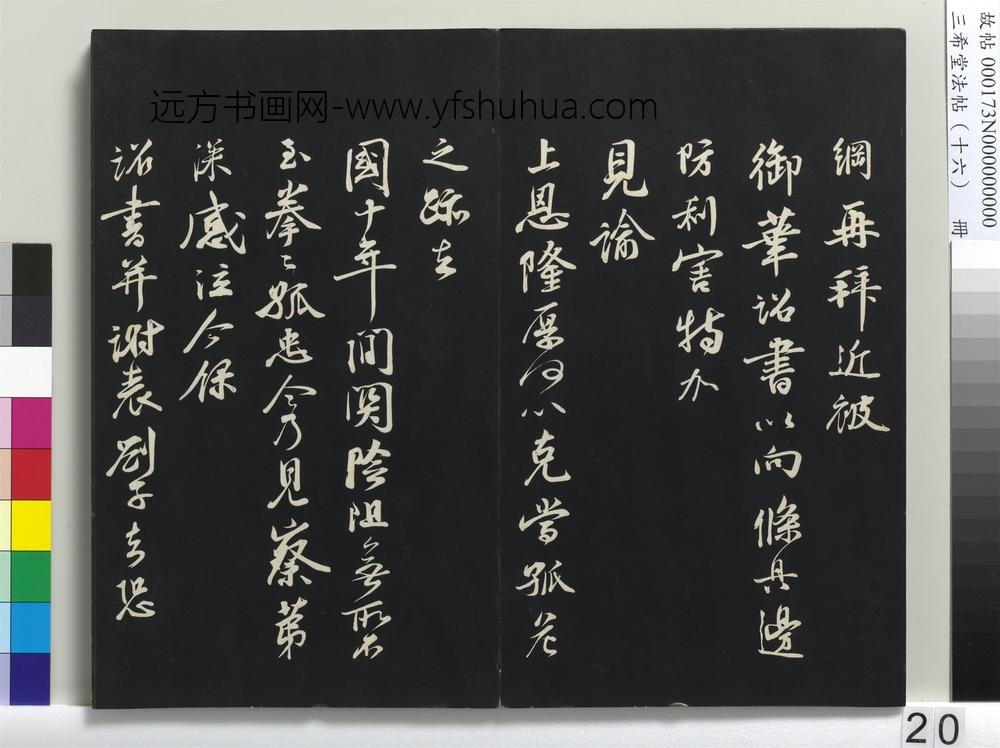 綱再拜近被
御筆詔書以向條具邊
防利害特加
見諭
上恩隆厚何以克當孤危
之跡去
國十年間關險阻無所
至拳拳孤忠今乃見察第
深感泣今保
詔書并謝表劄子去恐
远方书画网-www.yfshuhua.com
故帖 000173N000000000
三希堂法帖（十六） 冊
20